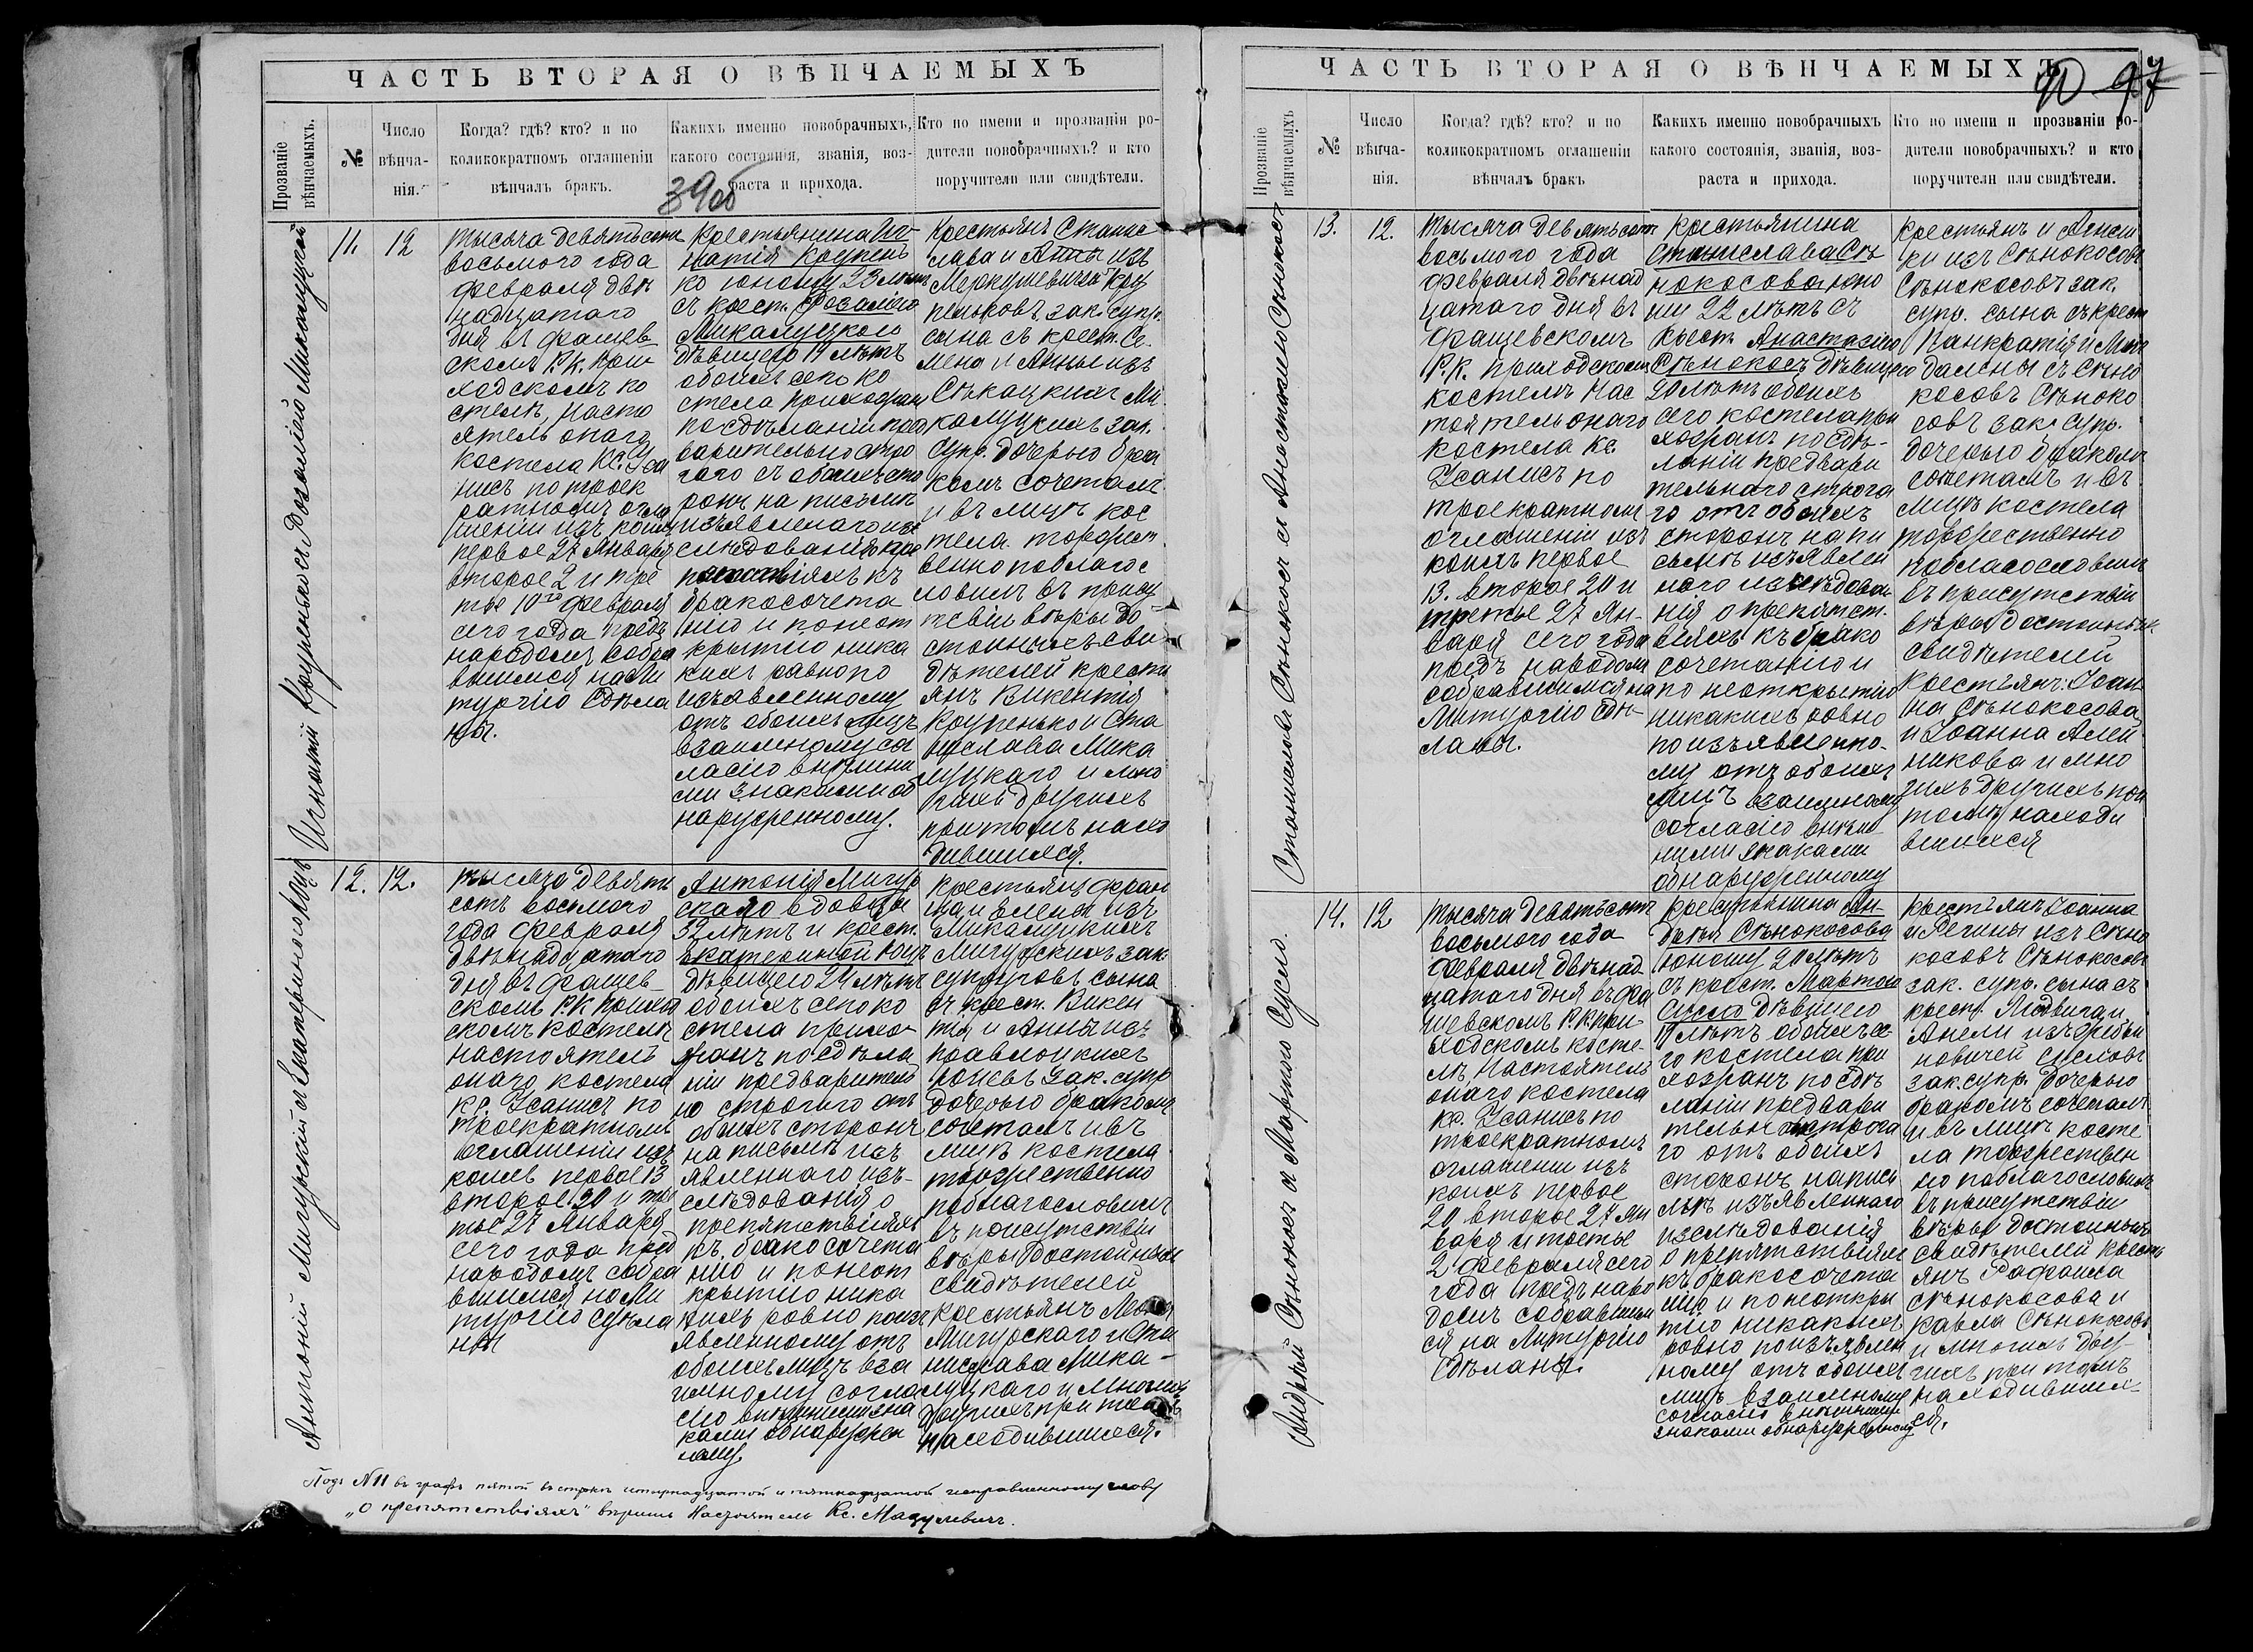 ЧАСТЬ ВТОРАЯ О ВѢНЧАЕМЫХЪ
Прозваніе вѣнчаемыхъ.
№
Число вѣнча-
нія.
Когда? гдѣ? кто? и по
коликократномъ оглашеніи
вѣнчалъ бракъ.
Какихъ именно новобрачныхъ,
какого состоянія, званія, воз-
раста и прихода.
Кто по имени и прозваніи ро-
дители новобрачныхъ? и кто
поручители или свидѣтели.
39об
Игнатій Крупенько съ Розаліей Микалуцкой
11.
12
Тысяча девятьсотъ
восьмого года
февраля двѣ
надцатаго
дня въ Фащев
скомъ Р.К. при
ходскомъ ко
стелѣ, насто
ятель онаго
костела Кс. Уса
нисъ по троек
ратномъ огла
шеніи изъ коихъ
первое 27 Января
второе 2 и тре
тье 10го февраля
сего года предъ
народомъ собра
вшимся на Ли
тургію сдѣла
ны.
Крестьянина Иг
натія Крупень
ко юношу 23 лѣтъ
съ крест. Розаліею
Микалуцкою
дѣвицею 19 лѣтъ
обоихъ сего ко
стела прихожан
по сдѣланіи пред
варительно стро
гаго съ обоихъ сто
ронъ на письмѣ
изъявленаго из
слѣдованія о пре
пятствіяхъ къ
бракосочета
нію и по неот
крытію ника
кихъ равно по
изъявленному
отъ обоихъ лицъ
взаимному со
гласію внѣшни
ми знаками об
наруженному.
Крестьянъ Станис
лава и Анны изъ
Меркулевичей Кру
пеньковъ, зак. супр.
сына съ крест. Се
мена и Анны изъ
Сѣкацкихъ Ми
калуцкихъ зак.
супр. дочерью бра
комъ сочеталъ
и въ лицѣ кос
тела торжест
венно поблагос
ловилъ въ прису
тсвіи вѣры до
стойныхъ сви
дѣтелей кресть
янъ Викентія
Крупенько и Ста
нислава Мика
луцкаго и мно
гихъ другихъ
притомъ нахо
дившихся.
Антоній Мигурскій съ Екатериною Юшъ
12.
12.
Тысяча девять
сотъ восьмого
года февраля
двѣнадцатаго
дня въ Фащев
скомъ Р.К приход
скомъ костелѣ
настоятель
онаго костела
Кс. Усанисъ по
троекратномъ
оглашеніи изъ
коихъ первое 13
второе 20 и тре
тье 27 Января
сего года предъ
народомъ собра
вшимся на Ли
тургію сдѣла
ны
Антонія Мигур
скаго вдовца
32 лѣтъ и крест.
Екатериной Юшъ
дѣвицею 24 лѣтъ
обоихъ сего ко
стела прихо
жанъ по сдѣла
ніи предварител
но строгаго отъ
обоихъ сторонъ
на письмѣ изъ
явленнаго из
слѣдованія о
препятствіяхъ
къ бракосочета
нію и по неот
крытію ника
кихъ ровно по изъ
явленному отъ
обоихъ лицъ вза
имному согла
сію внѣшними зна
ками обнаружен
ному.
Крестьянъ Фран
ца и Елены изъ
Микалуцкихъ
Мигурскихъ зак.
супруговъ сына
съ крест. Викен
тія и Анны изъ
Правлоцкихъ
Юшевъ зак. супр
дочерью бракомъ
сочеталъ и въ
лицѣ костела
торжественно
поблагословилъ
въ присутствіи
вѣры достойныхъ
свидѣтелей
крестьянъ Леона
Мигурскаго и Ста
нислава Мика-
луцкаго и многихъ
другихъ при томъ
находившихся.
Подъ N 11 въ графѣ пятой въ строкѣ четырнадцатой и пятнадцатой исправленному слову
„о препятствіяхъ" вѣримъ Настоятель Кс. Мацулевичъ.
ЧАСТЬ ВТОРАЯ О ВѢНЧАЕМЫХЪ
40 97
Прозваніе вѣнчаемыхъ
№
Число
вѣнча-
нія.
Когда? гдѣ? кто? и по
коликократномъ оглашеніи
вѣнчалъ бракъ
Какихъ именно новобрачныхъ
какого состоянія, званія, воз-
раста и прихода.
Кто по имени и прозваніи ро-
дители новобрачныхъ? и кто
поручители или свидѣтели.
Станиславъ Сѣнокосъ съ Анастазіею Сѣнокосъ
13.
12.
Тысяча девятьсот
восьмого года
февраля двѣнад
цатаго дня въ
Фащевскомъ
Р.К. приходскомъ
костелѣ нас
тоятель онаго
костела Кс.
Усанисъ по
троекратномъ
оглашеніи изъ
коихъ первое
13. второе 20 и
третье 27 Ян-
варя сего года
предъ народомъ
собравшимся на
Литургію сдѣ-
ланы.
Крестьянина
Станислава Сѣ
нокосова юно
ши 22 лѣтъ съ
крест. Анастазіею
Сѣнокосъ дѣвицею
20 лѣтъ обоихъ
сего костела при
хожанъ по сдѣ-
ланіи предвари
тельнаго строга
го отъ обоихъ
сторонъ на пи
сьмѣ изъявлен
наго изслѣдова
нія о препятст.
віяхъ къ брако
сочетанію и
по неоткрытію
никакихъ ровно
по изъявленно-
му отъ обоихъ
лицъ взаимному
согласію внѣш
ними знаками
обнаруженному
Крестьянъ и Агнеш
ки изъ Сѣнокосовъ
Сѣнокосовъ зак.
супр. сына съ крест
Панкратія и Маг
далены съ Сѣно
косовъ Сѣноко
совъ зак. супр.
дочерью бракомъ
сочеталъ и въ
лицѣ костела
торжественно
поблагословилъ
въ присутствіи
вѣры достойныхъ
свидѣтелей
крестьянъ: Іоан
на Сѣнокосова
и Іоанна Алей
никова и мно
гихъ другихъ при
томъ находи
вшихся
Андрей Сѣнокосъ съ Мартою Сусло.
14.
12
Тысяча девятьсотъ
восьмого года
февраля двѣнад
цатаго дня въ Фа
щевскомъ Р.К. при
ходскомъ косте-
лѣ, Настоятель
онаго костела
Кс. Усанисъ по
троекратномъ
оглашеніи изъ
коихъ первое
20 второе 27 Ян
варя и третье
2 февраля сего
года предъ наро
домъ собравшим
ся на Литургію
сдѣланы.
Крестьянина Ан-
дрея Сѣнокосова
юношу 20 лѣтъ
съ крест. Мартою
Сусло дѣвицею
лѣтъ обоихъ се-
го костела при
хожанъ по сдѣ
ланіи предвари
тельн строга
го отъ обоихъ
сторонъ на пись
мѣ изъявленнаго
изслѣдованія
о препятствіяхъ
къ бракосочета
нію и по неоткры
тію никакихъ
ровно по изъявлен
ному отъ обоихъ
лицъ взаимному
согласію внѣшними
знаками обнаруженному
Крестьянъ Іоанна
и Регины изъ Сѣно
косовъ Сѣнокосовъ
зак. супр. сына съ
крест. Людвига и
Анели изъ
новичей Сусловъ
зак. супр. дочерью
бракомъ сочеталъ
и въ лицѣ косте
ла торжествен
но поблагословилъ
въ присутствіи
вѣры достойныхъ
свидѣтелей кресть
янъ Рафаила
Сѣнокосова и
Павла Сѣнокосова
и многихъ дру-
гихъ при томъ
находивших-
ся.